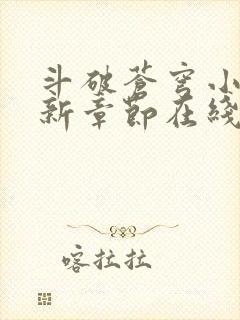 斗破苍穹小
新章節在綫
喀拉拉